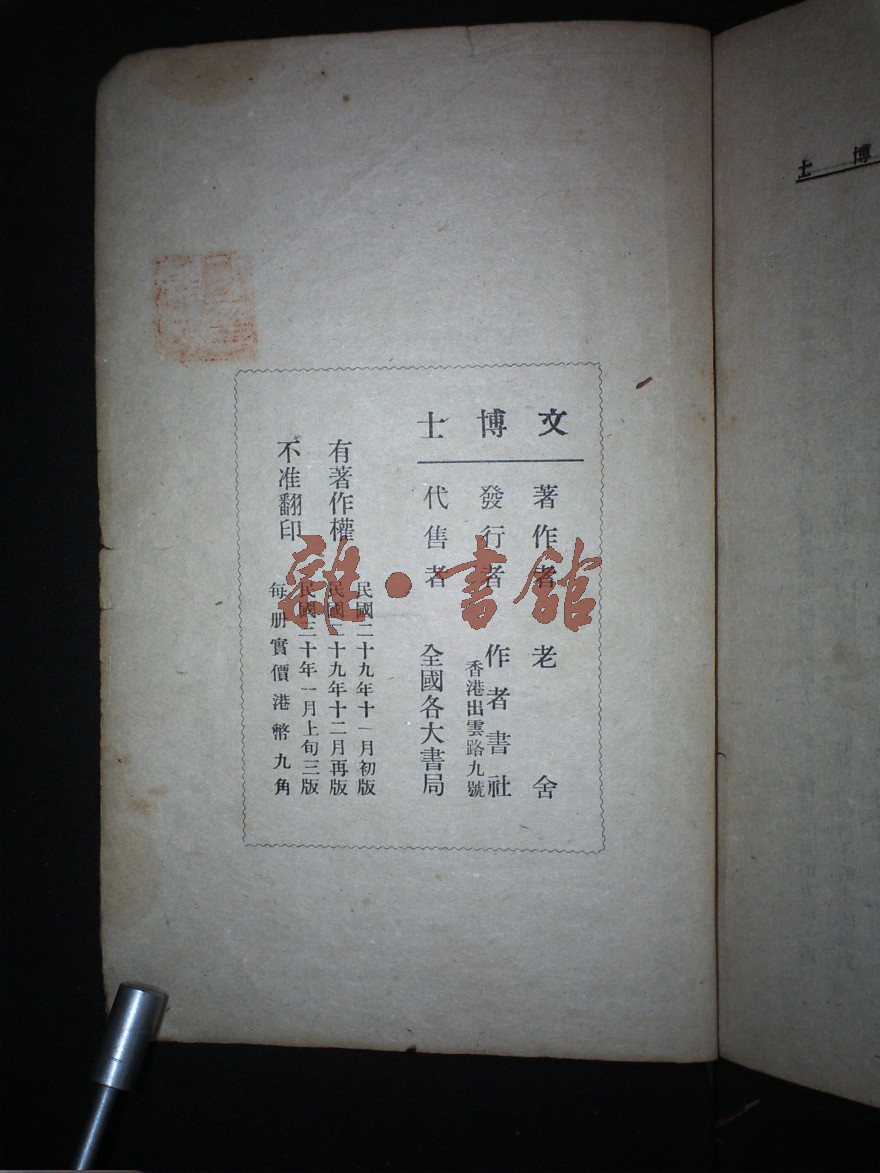 文博士
著作者 老舍
發行者 作者書社
香港出雲路九號
代售者 全國各大書局
有著作權
不准翻印
民國二十九年十一月初版
民國二十九年十二月再版
民國三十年一月上旬三版
每册實價港幣九角
雜·書館
博士